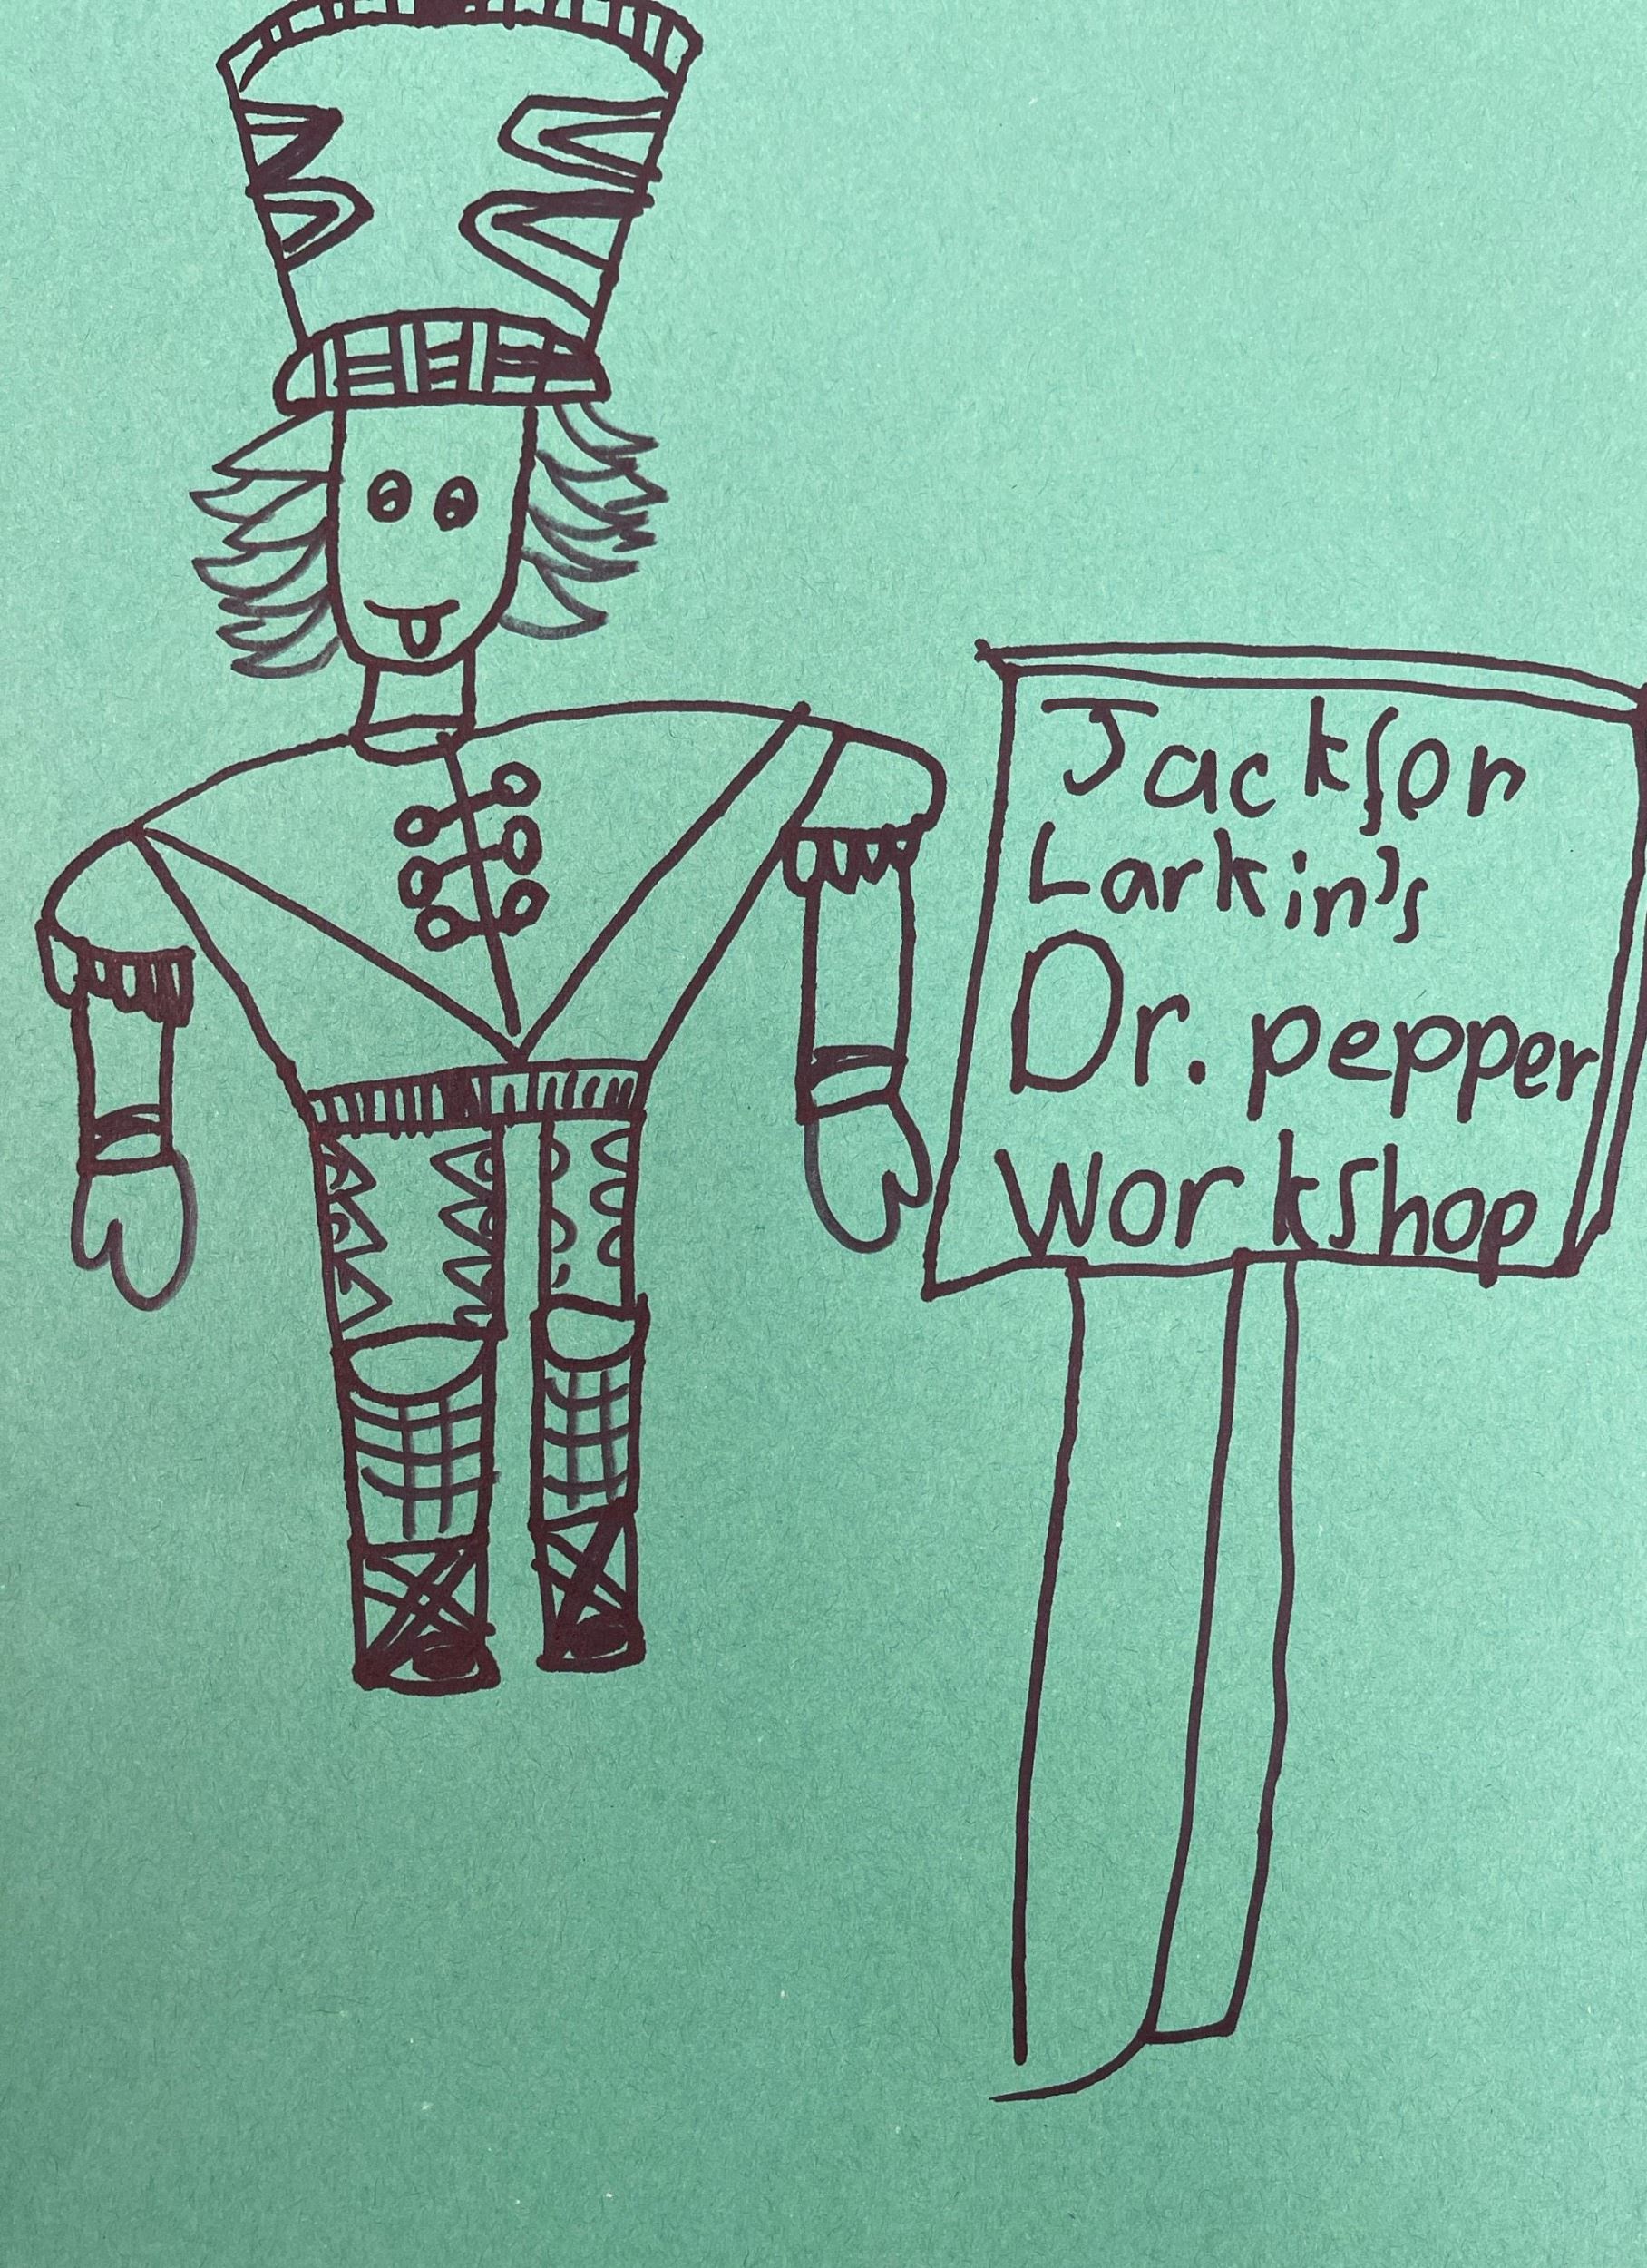 Jackson
Larkin's
Dr. pepper
Workshop